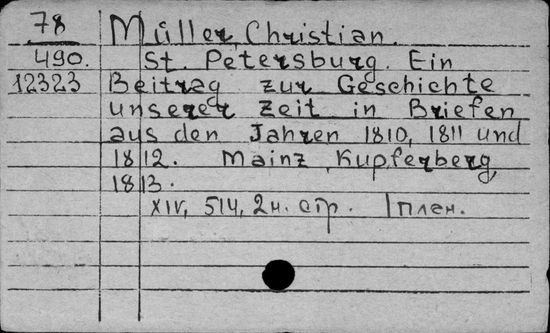 78 Müller, Christian.
490. St. Petersburg. Ein
12323 Beitrag zur Geschichte
unserer Zeit in Briefen
aus den Jahren 1810, 1811 und
1812. Mainz, Kupferberg,
1813.
XIV, 514, 2н. стр. 1 план.